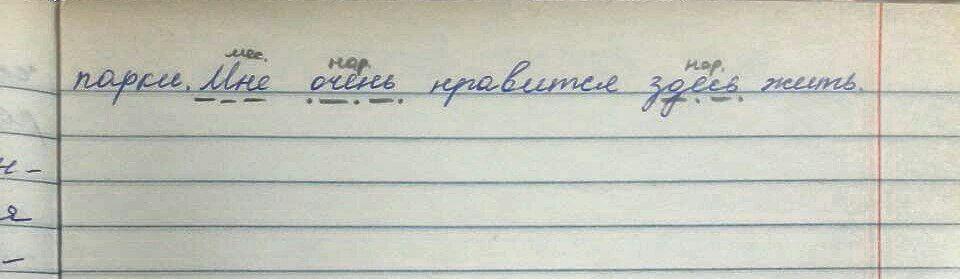 мес. нар. нар.
парки. Мне очень нравится здесь жить.
н-
я
-